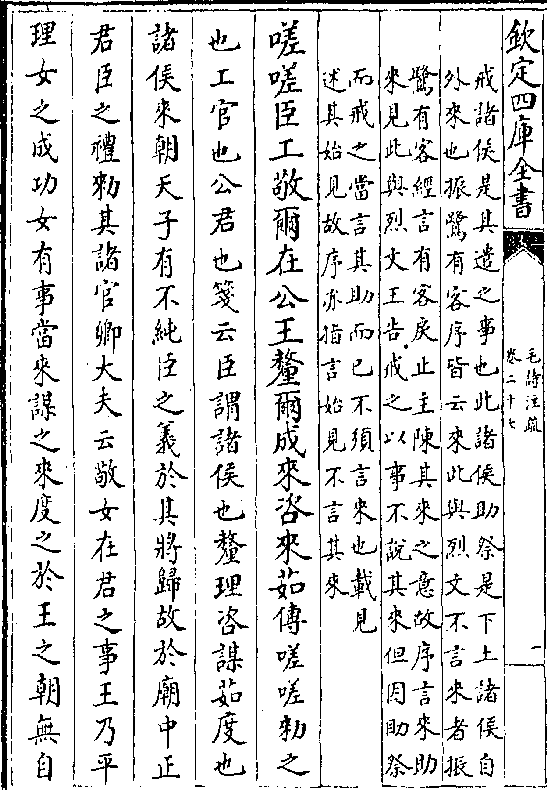 欽定四庫全書
毛詩注疏
卷二十七
一
戒諸侯是其遣之事也此諸侯助祭是下土諸侯自
外來也振鷺有客序皆云來此與烈文不言來者振
鷺有客經言有客戾止主陳其來之意故序言來助
來見此與烈文王告戒之以事不說其來但因助祭
而戒之當言其助而已不須言來也載見
述其始見故序亦指言始見不言其來
嗟嗟臣工敬爾在公王釐爾成來咨來茹傳嗟嗟勑之
也工官也公君也箋云臣謂諸侯也釐理咨謀茹度也
諸侯來朝天子有不純臣之義於其將歸故於廟中正
君臣之禮勑其諸官卿大夫云敬女在君之事王乃平
理女之成功女有事當來謀之來度之於王之朝無自